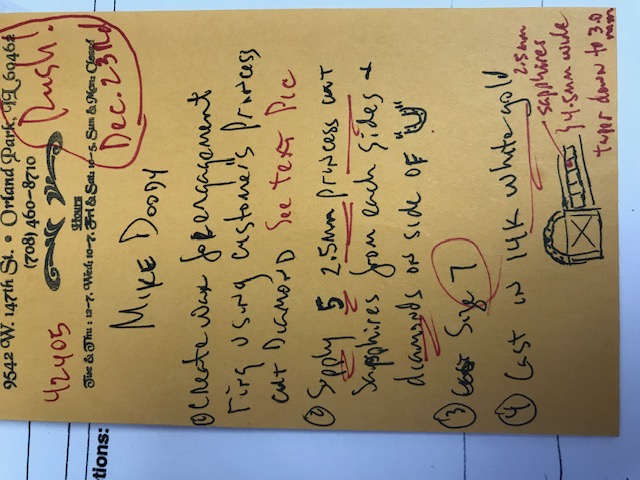 9542 W. 147th St. • Orland Park, IL 60462
(708) 460-8710
42405
Rush!
Dec. 23rd
Hours
Tue & Thu: 12-7, Wed: 10-7, Fri & Sat: 10-5, Sun & Mon: Closed
tions:
Mike Doody
① Create wax for engagement
ring using customer's princess
cut Diamond See text Pic
② Supply 5 2.5mm princess cut
Sapphires from each sides +
diamonds on side of "U"
③ Size 7
④ Cast in 14K white gold
2.5mm
sapphires
} 4.5mm wide
taper down to 3.0
mm